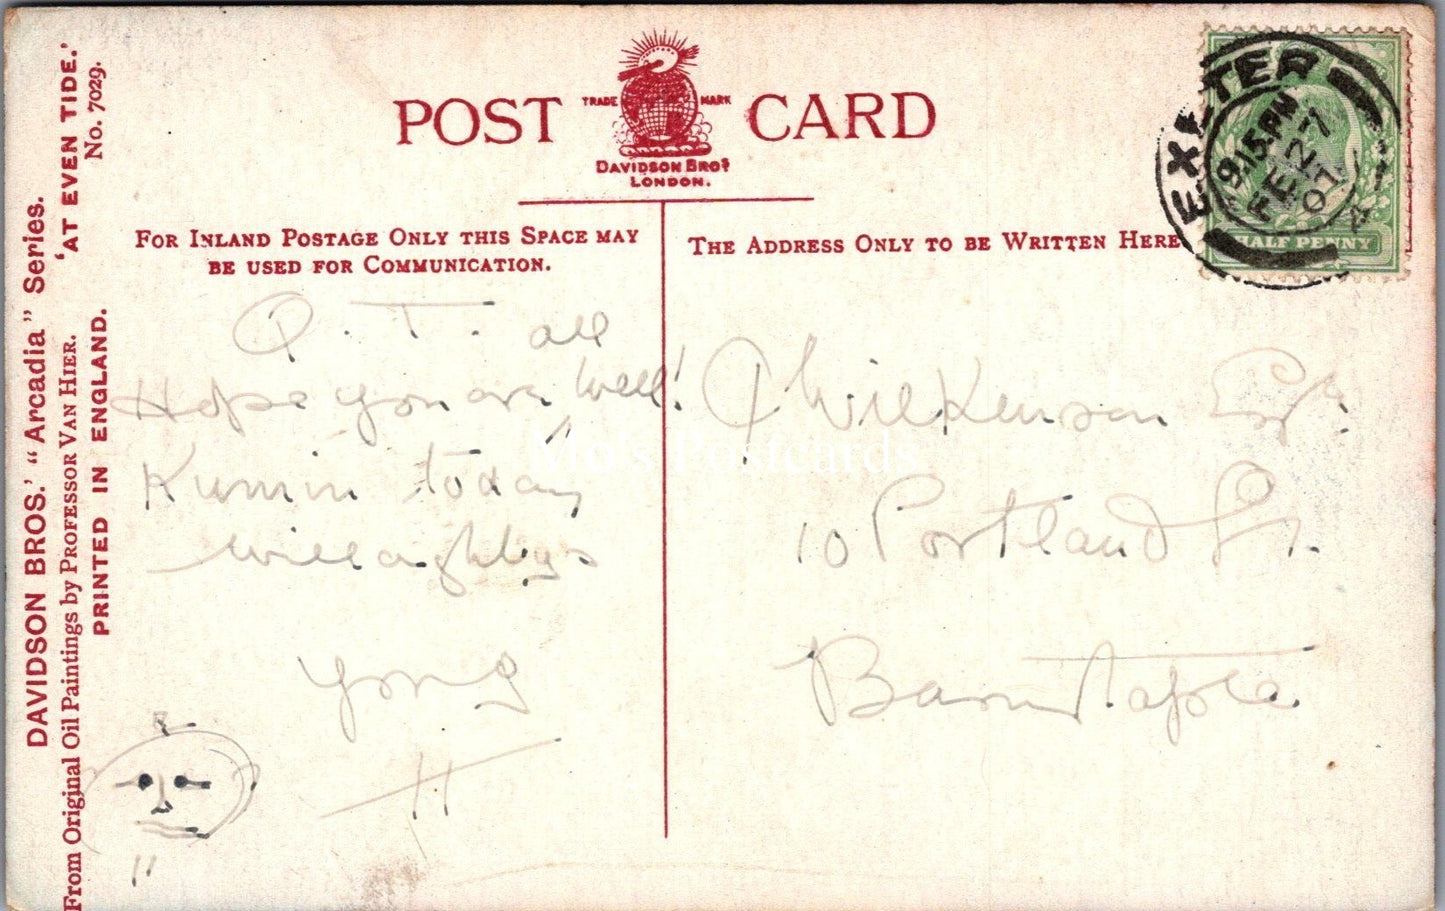 DAVIDSON BROS.' "Arcadia" Series.
From Original Oil Paintings by PROFESSOR VAN HIER.
PRINTED IN ENGLAND.
'AT EVEN TIDE.'
No. 7029.
POST CARD
TRADE MARK
DAVIDSON BROS
LONDON.
FOR INLAND POSTAGE ONLY THIS SPACE MAY
BE USED FOR COMMUNICATION.
THE ADDRESS ONLY TO BE WRITTEN HERE
EXETER
9.15 PM
FE 27
07
HALF PENNY
all
Hope you are well!
today
Willoughbys
H
Wilkenson Esqr
10 Portland St.
Barnstaple
Mo's Postcards